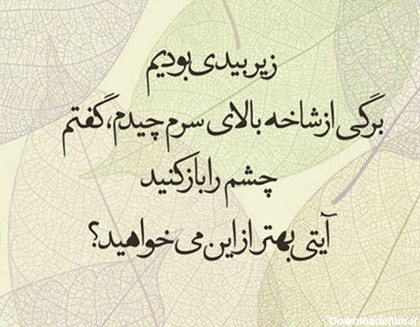 زیر بیدی بودیم
برگی از شاخه بالای سرم چیدم، گفتم
چشم را باز کنید
آیتی بهتر از این می خواهید؟